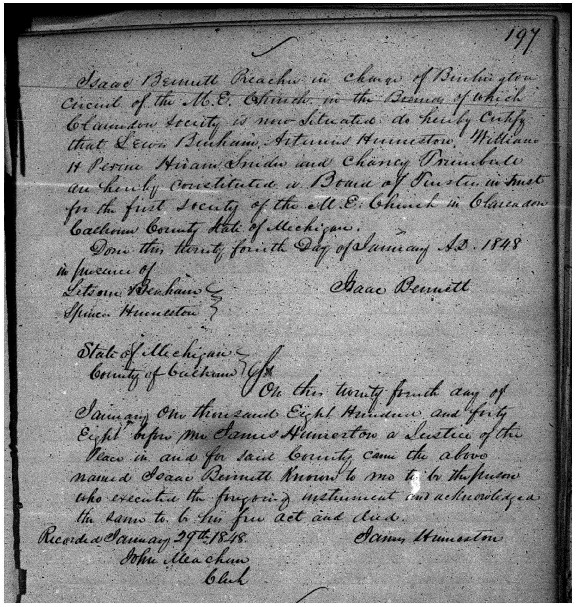 197
Isaac Bennett Preacher in charge of Burlington
Circuit of the M.E. Church, in the Bounds of which
Clarendon Society is now Situated do hereby Certify
that Lewis Benham, Artemus Humeston, William
H Perine Hiram Snider and Chancy Trumbule
are hereby constituted a Board of Trustees in trust
for the first Society of the M.E. Church in Clarendon
Calhoun County State of Mechigan.
Done this twenty fourth Day of January A.D. 1848
in presence of
Letsom Benham
Isaac Bennett
Spencer Humeston
State of Mechigan
County of Calhoun } SS
On this twenty fourth day of
January One thousand Eight Hundred and forty
Eight before me James Humeston a Justice of the
Peace in and for said County came the above
named Isaac Bennett Known to me to be the person
who executed the foregoing instrument and acknowledged
the same to be his free act and deed.
Recorded January 29th 1848.
James Humeston
John Meachum
Clerk